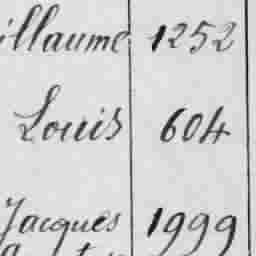 illaume 1252
Louis 604
Jacques 1999